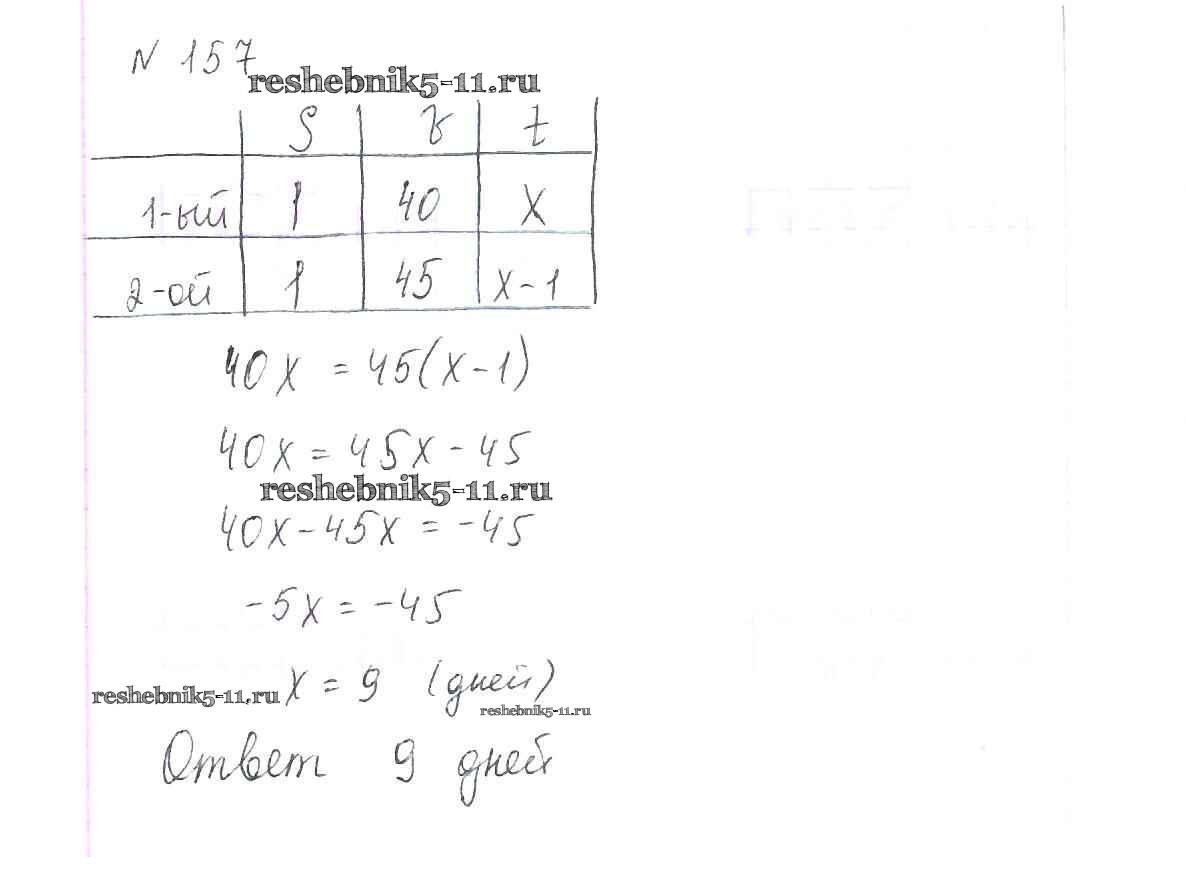 N 157
reshebnik5-11.ru
S v t
1-ый 1 40 x
2-ой 1 45 x-1
40x = 45(x-1)
40x = 45x - 45
reshebnik5-11.ru
40x - 45x = -45
-5x = -45
reshebnik5-11.ru x = 9 (дней)
reshebnik5-11.ru
Ответ 9 дней